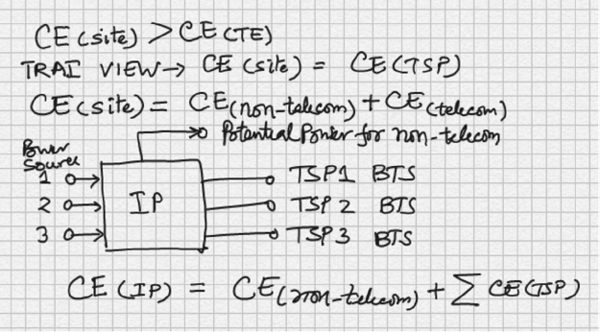 CE(site) > CE(TE)
TRAI VIEW → CE(site) = CE(TSP)
CE(site) = CE(non-telecom) + CE(telecom)
Potential Power for non-telecom
Power
Source
1 TSP1 BTS
2 IP TSP 2 BTS
3 TSP3 BTS
CE(IP) = CE(non-telecom) + ∑ CE(TSP)